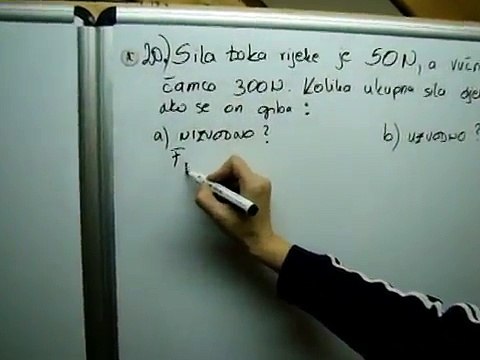 20.) Sila toka rijeke je 50N, a vučn
čamca 300N. Kolika ukupna sila dje
ako se on giba:
a) NIZVODNO? b) UZVODNO?
F